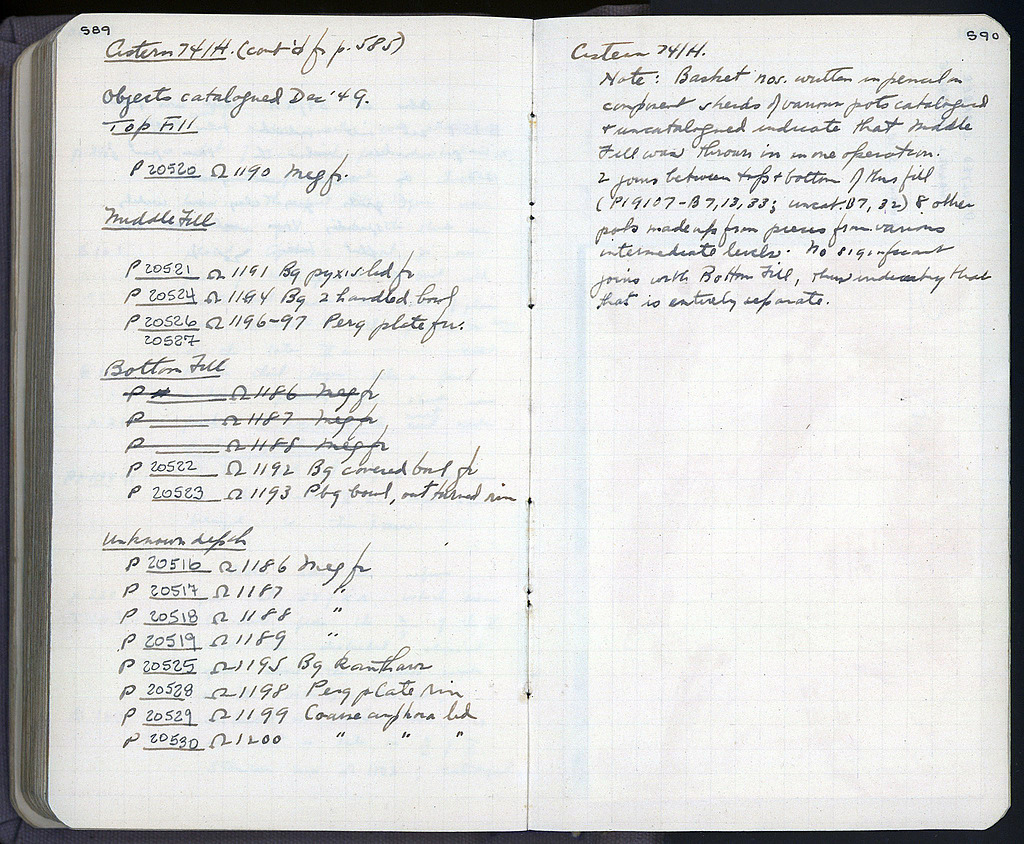 589
Cistern 74/H. (cont'd fr p. 585)
Objects catalogued Dec '49.
Top Fill
P 20520 Ω 1190 Meg fr.
Middle Fill
P 20521 Ω 1191 Bg pyxis lid fr
P 20524 Ω 1194 Bg 2 handled bowl
P 20526 Ω 1196-97 Perg plate frr.
20527
Bottom Fill
P Ω 1186 Meg fr
P Ω 1187 Meg fr
P Ω 1188 Meg fr
P 20522 Ω 1192 Bg covered bowl fr
P 20523 Ω 1193 Pbg bowl, out turned rim
Unknown depth
P 20516 Ω 1186 Meg fr
P 20517 Ω 1187 "
P 20518 Ω 1188 "
P 20519 Ω 1189 "
P 20525 Ω 1195 Bg Kantharos
P 20528 Ω 1198 Perg plate rim
P 20529 Ω 1199 Coarse amphora lid
P 20530 Ω 1200 " " "
590
Cistern 74/H.
Note: Basket nos. written in pencil on
component sherds of various pots catalogued
+ uncatalogued indicate that Middle
Fill was thrown in in one operation.
2 joins between top + bottom of this fill
(P19107-B7,13,33; uncat. B7, 32) 8 other
pots made up from pieces from various
intermediate levels. No significant
joins with Bottom Fill, thus indicating that
that is entirely separate.